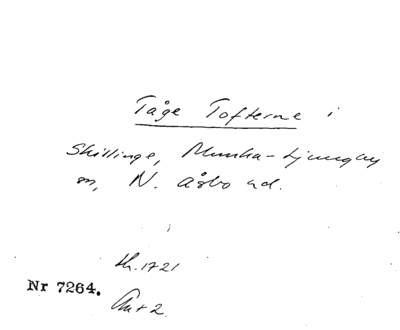 Tåge Tofterne i
Skillinge, Munka-Ljungby
sn, N. Åsbo hd.
th. 1721
Nr 7264.